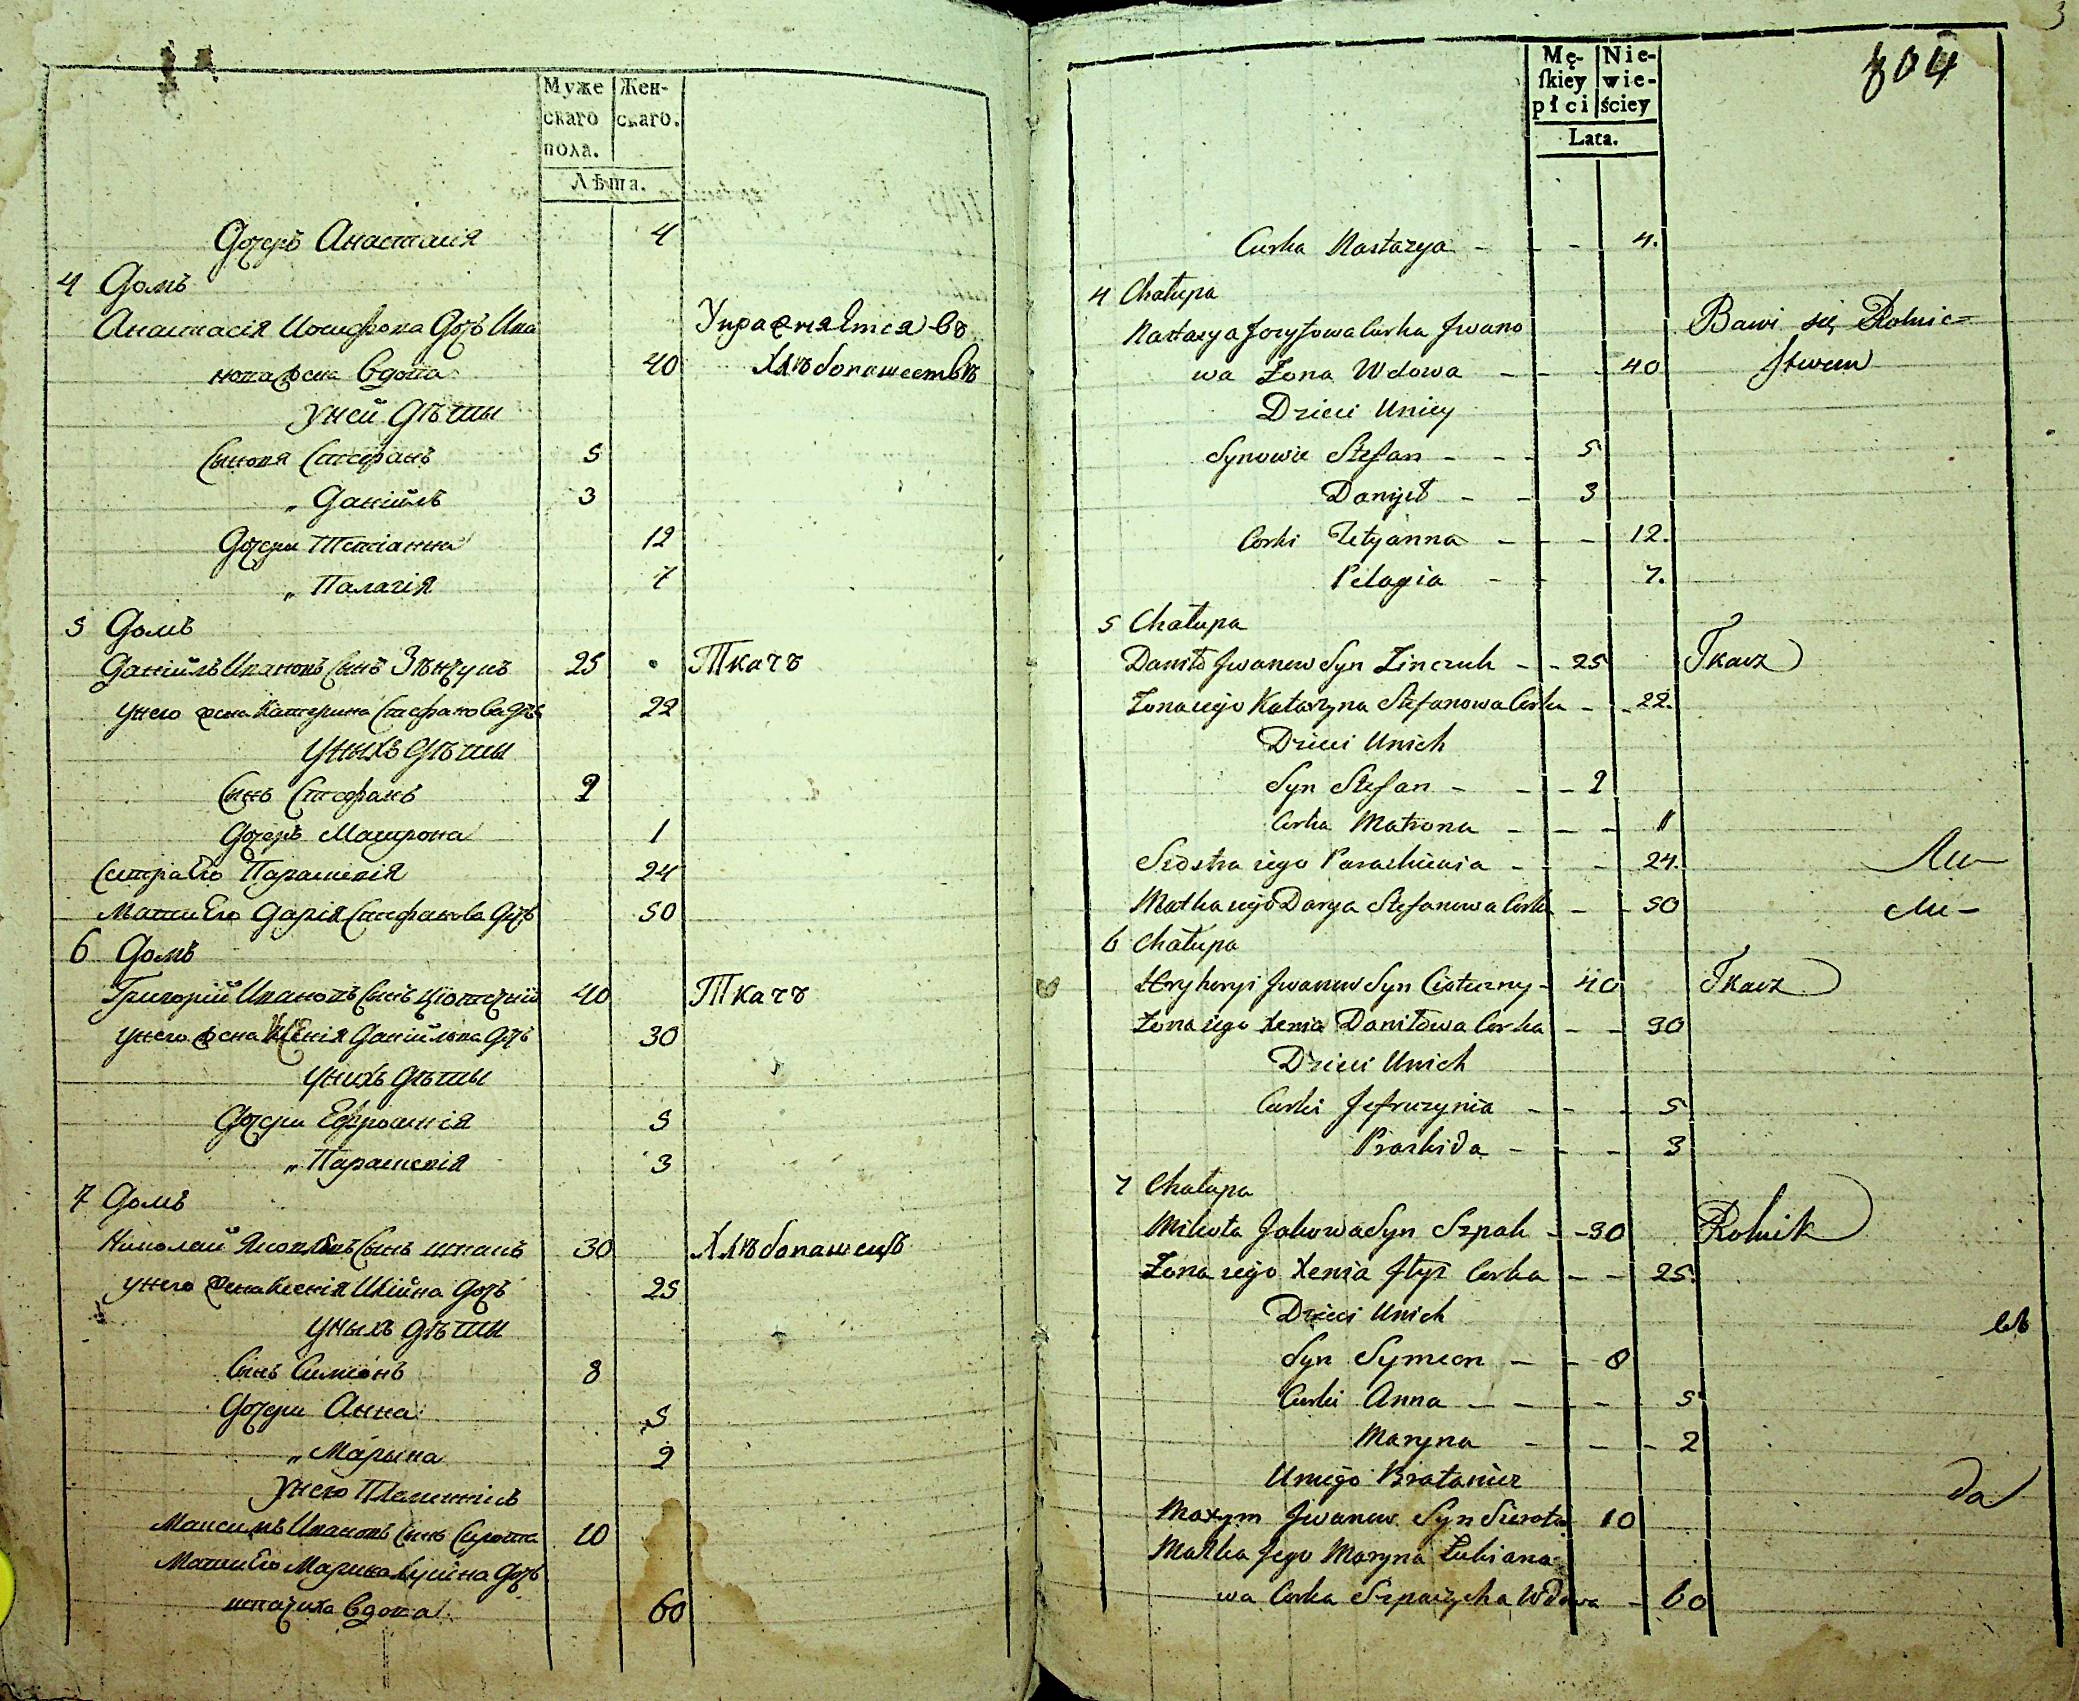 Муже
скаго
пола.
Жен-
скаго.
Лѣта.
Дочерь Анастасія 4
4 Домъ
Анастасія Иосифова Дочь Ива
нова жена Вдова 40
Упражняется въ
Хлѣбопашествѣ
У ней Дѣти
Сыновя Стефанъ 5
„ Даніилъ 3
Дочери Тетіанна 12
„ Палагія 7
5 Домъ
Даніилъ Ивановъ Сынъ Зѣнчукъ 25 Ткачъ
у него жена Катерина Стефанова дочь 22
У ныхъ Дѣти
Сынъ Стефанъ 2
Дочерь Матрона 1
Сестра Его Парашкевія 24
Мати Его Дарія Стефанова Дочь 50
6 Домъ
Григорій Ивановъ Сынъ 40 Ткачъ
У него жена Ксенія Даніилова Дочь 30
У нихъ Дѣти
Дочери Ефросинія 5
„ Парашкевія 3
7 Домъ
Николай Яковлевъ Сынъ шпакъ 30 Хлѣбопашецъ
у него жена Ксенія Илійна Дочь 25
У ныхъ Дѣти
Сынъ Симеонъ 8
Дочери Анна 5
„ Марына 2
У него Племинникъ
Максимъ Ивановъ Сынъ Сирота 10
Мати Его Марина Дочь
шпачиха Вдова 60
3
804
Mę-
skiey
płci
Nie-
wie-
ściey
Lata.
Curka Nastazya - - - 4.
4 Chałupa
Nastazya Jozyfowa Curka Jwano
wa Zona Wdowa - - - 40
Bawi się Rolnic=
stwem
Dzieci Uniey
Synowie Stefan - - - 5
Daniył - - 3
Corki Tetyanna - - - 12.
Pelagia - - 7.
5 Chałupa
Daniło Jwanow Syn Zinczuk - - 25 Tkacz
Zona iego Katarzyna Stefanowa Corka - - 22.
Dzieci Unich
Syn Stefan - - - 2
Corka Matrona - - - 1
Siostra iego Paraskiewia - - - 24.
Matka iego Darya Stefanowa Corka - - 50
6 Chałupa
Hryhoryi Jwanow Syn - 40 Tkacz
Zona iego Xenia Daniłowa Corka - - 30
Dzieci Unich
Curki Jefruzynia - - - 5
Paraskida - - - 3
7 Chałupa
Mikoła Jakowa Syn Szpak - - 30 Rolnik
Zona iego Xenia Corka - - 25.
Dzieci Unich
Syn Symeon - - 8
Curki Anna - - - - 5
Maryna - - - 2
Uniego Bratanicz
Maxym Jwanow Syn Sierota 10
Matka Jego Maryna Łukiano
wa Corka Szpaczycha Wdowa - 60